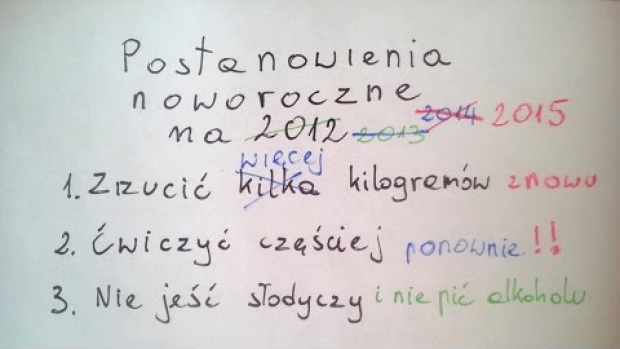 Postanowienia
noworoczne
na 2012 2013 2014 2015
więcej
1. Zrzucić kilka kilogramów znowu
2. Ćwiczyć częściej ponownie!!
3. Nie jeść słodyczy i nie pić alkoholu